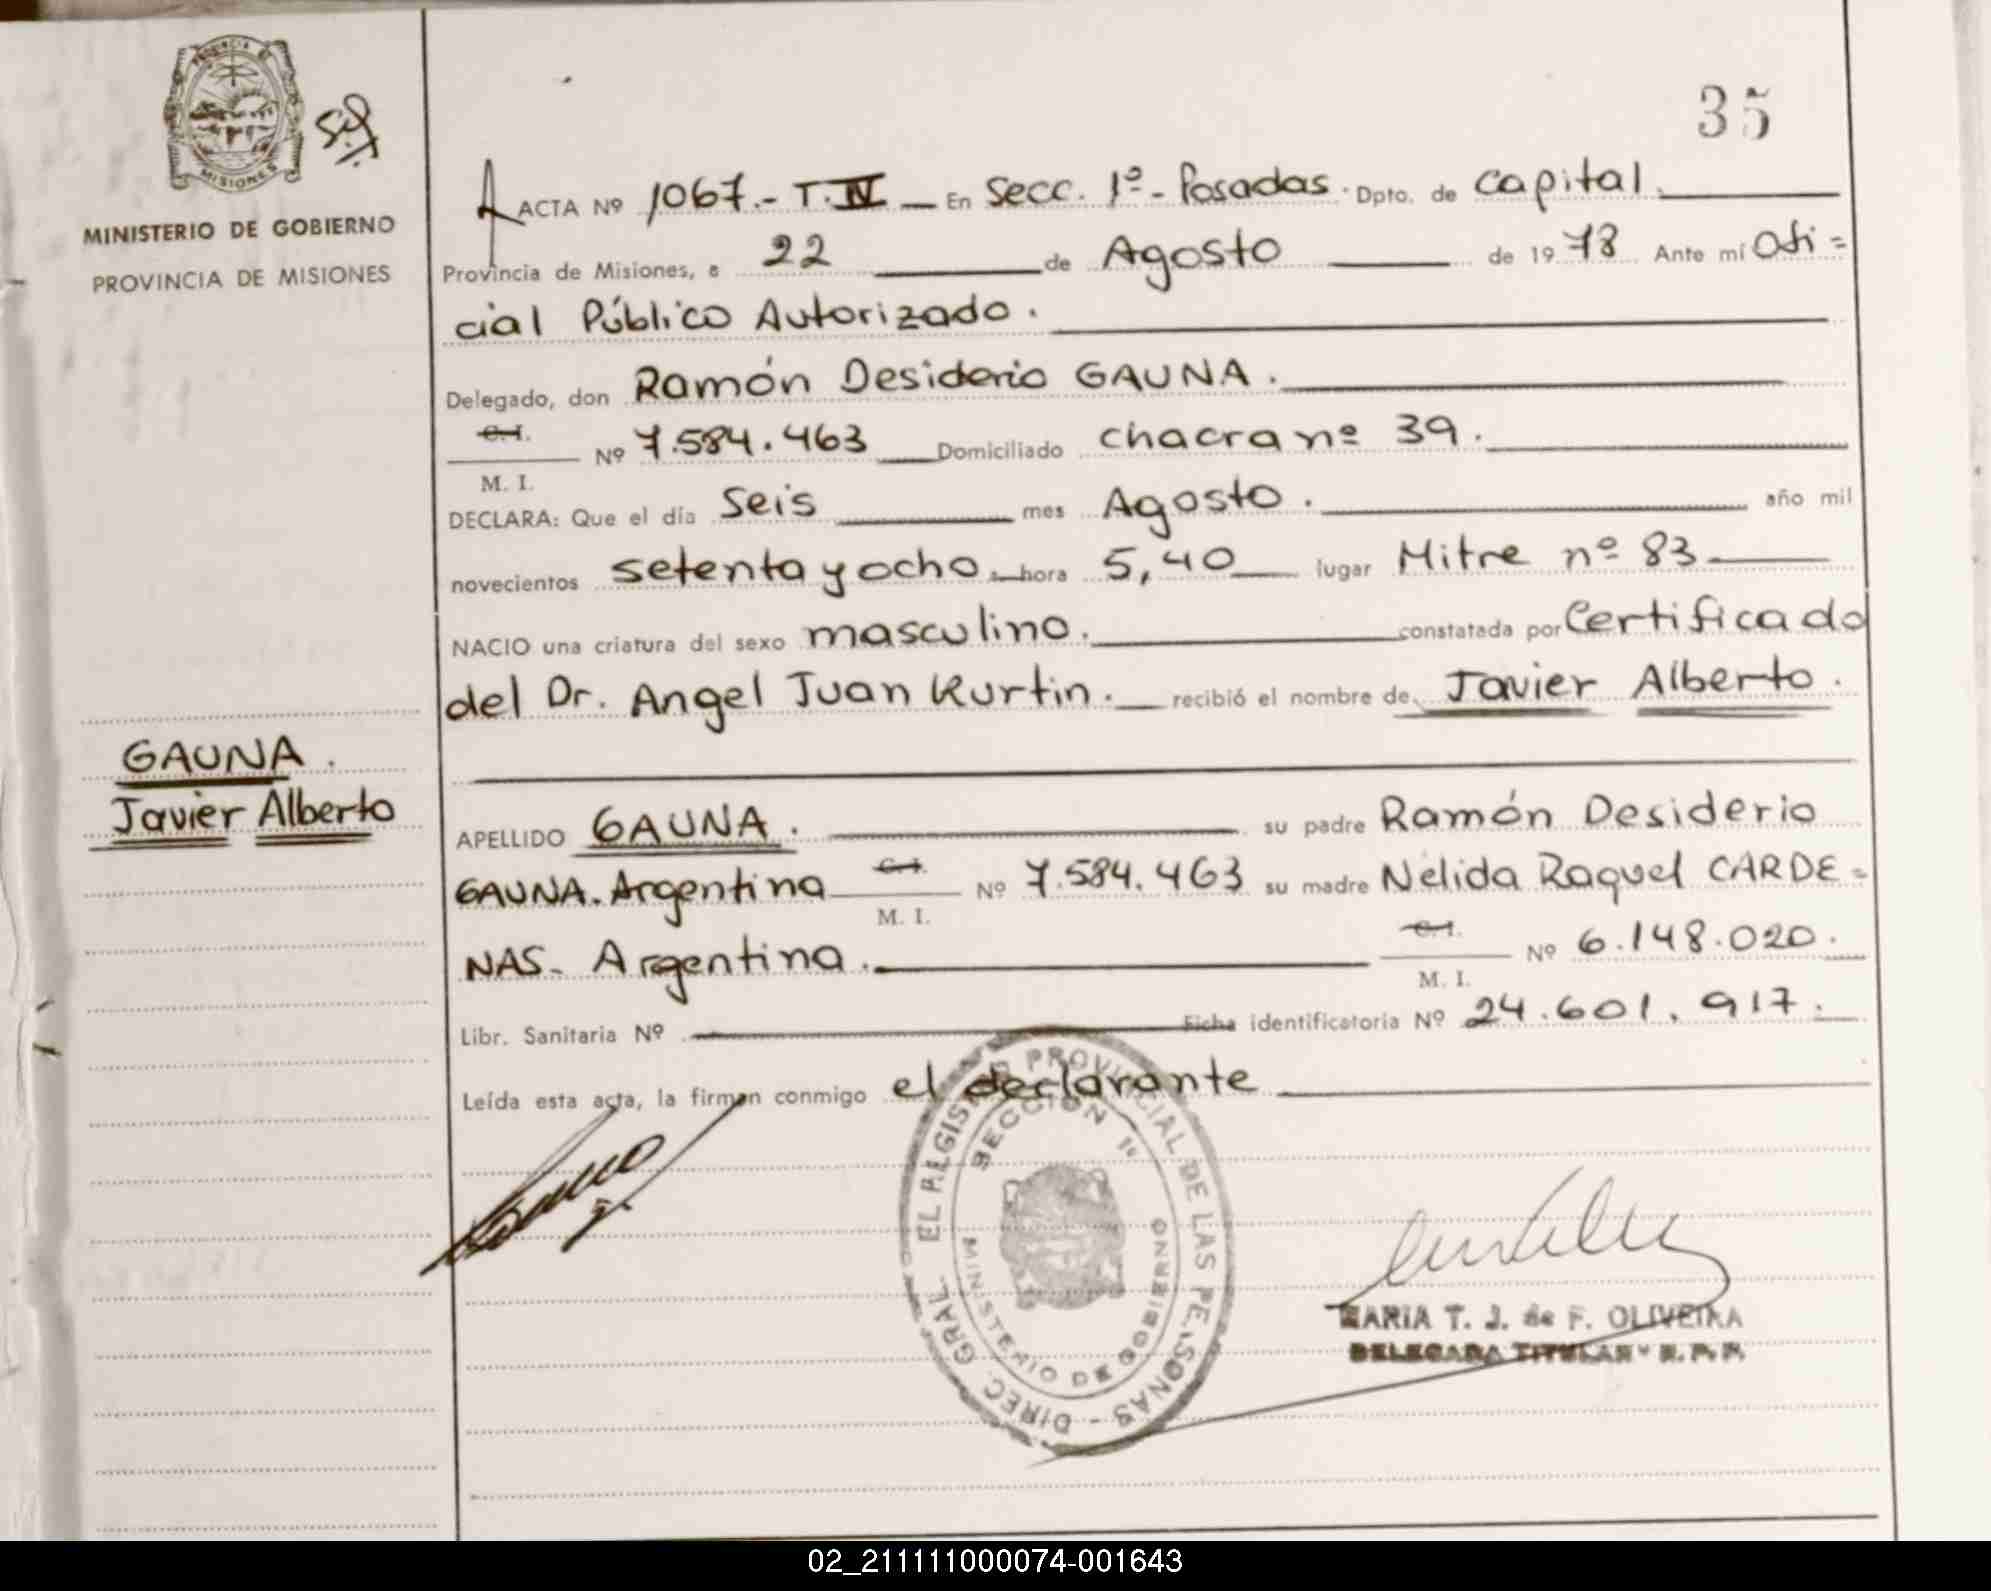 35
PROVINCIA DE
MISIONES
MINISTERIO DE GOBIERNO
PROVINCIA DE MISIONES
ACTA Nº 1067.- T. IV En Secc. 1º- Posadas. Dpto. de Capital
Provincia de Misiones, a 22 de Agosto de 1978 Ante mí Ofi=
cial Público Autorizado.
Delegado, don Ramón Desiderio GAUNA.
C.I.
M. I. Nº 7.584.463 Domiciliado chacra nº 39.
DECLARA: Que el día Seis mes Agosto. año mil
novecientos setenta y ocho. hora 5,40 lugar Mitre nº 83
NACIO una criatura del sexo masculino. constatada por Certificado
del Dr. Angel Juan Kurtin. recibió el nombre de Javier Alberto.
GAUNA.
Javier Alberto
APELLIDO GAUNA. su padre Ramón Desiderio
GAUNA. Argentina C.I. M. I. Nº 7.584.463 su madre Nélida Raquel CARDE=
NAS- Argentina. C.I. M. I. Nº 6.148.020.
Libr. Sanitaria Nº Ficha identificatoria Nº 24.601.917.
Leída esta acta, la firman conmigo el declarante
DIREC. GRAL. EL REGISTRO PROVINCIAL DE LAS PERSONAS -
SECCION 1º
MINISTERIO DE GOBIERNO
MARIA T. J. de F. OLIVEIRA
DELEGADA TITULAR - R. P. P.
02_211111000074-001643